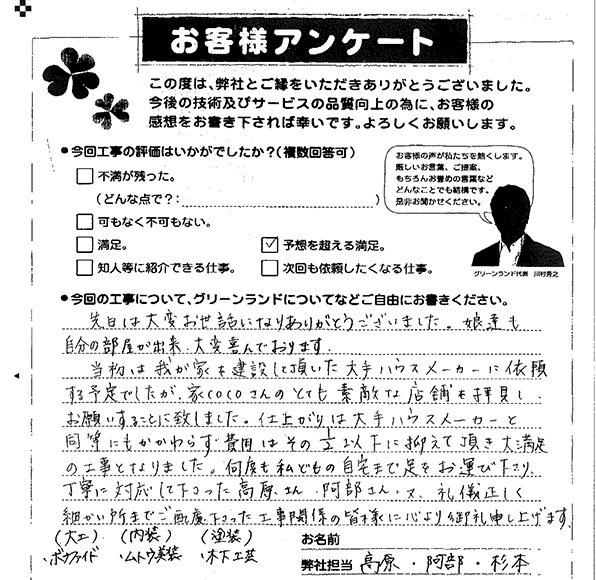 お客様アンケート
この度は、弊社とご縁をいただきありがとうございました。
今後の技術及びサービスの品質向上の為に、お客様の
感想をお書き下されば幸いです。よろしくお願いします。
●今回工事の評価はいかがでしたか？(複数回答可)
不満が残った。
(どんな点で？: )
可もなく不可もない。
満足。
予想を超える満足。
知人等に紹介できる仕事。
次回も依頼したくなる仕事。
お客様の声が私たちを熱くします。
厳しいお言葉、ご提案、
もちろんお褒めの言葉など
どんなことでも結構です。
是非お聞かせください。
グリーンランド代表 川村秀之
●今回の工事について、グリーンランドについてなどご自由にお書きください。
先日は大変お世話になりありがとうございました。娘達も
自分の部屋が出来、大変喜んでおります。
当初は我が家を建設して頂いた大手ハウスメーカーに依頼
する予定でしたが、家cocoさんのとても素敵な店舗を拝見し、
お願いすることに致しました。仕上がりは大手ハウスメーカーと
同等にもかかわらず費用はその1/2以下に抑えて頂き大満足
の工事となりました。何度も私どもの自宅まで足をお運び下さり、
丁寧に対応して下さった高原さん、阿部さん、又、礼儀正しく
細かい所までご配慮下さった工事関係の皆様に心より御礼申し上げます。
(大工) (内装) (塗装)
・ボナファイド ・ムトウ美装 ・木下工芸
お名前
弊社担当 高原・阿部・杉本